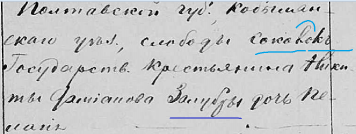 Полтавской губ. Кобыляк-
скаго уѣз., слободы Соколокъ
Государств. крестьянина Ники-
ты Даміанова Залубы дочь Пе-
лагія